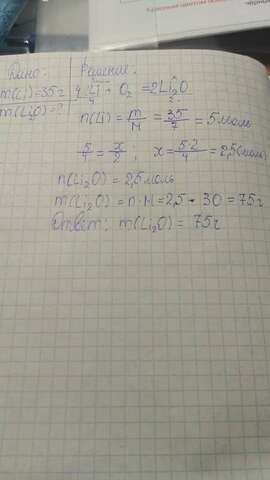 Дано:
m(Li)=35г
m(Li₂O)=?
Решение:
4Li + O₂ = 2Li₂O
n(Li) = m/M = 35/7 = 5 моль
5/4 = x/2, x = 5·2/4 = 2,5(моль)
n(Li₂O) = 2,5 моль
m(Li₂O) = n·M = 2,5 · 30 = 75г
Ответ: m(Li₂O) = 75г